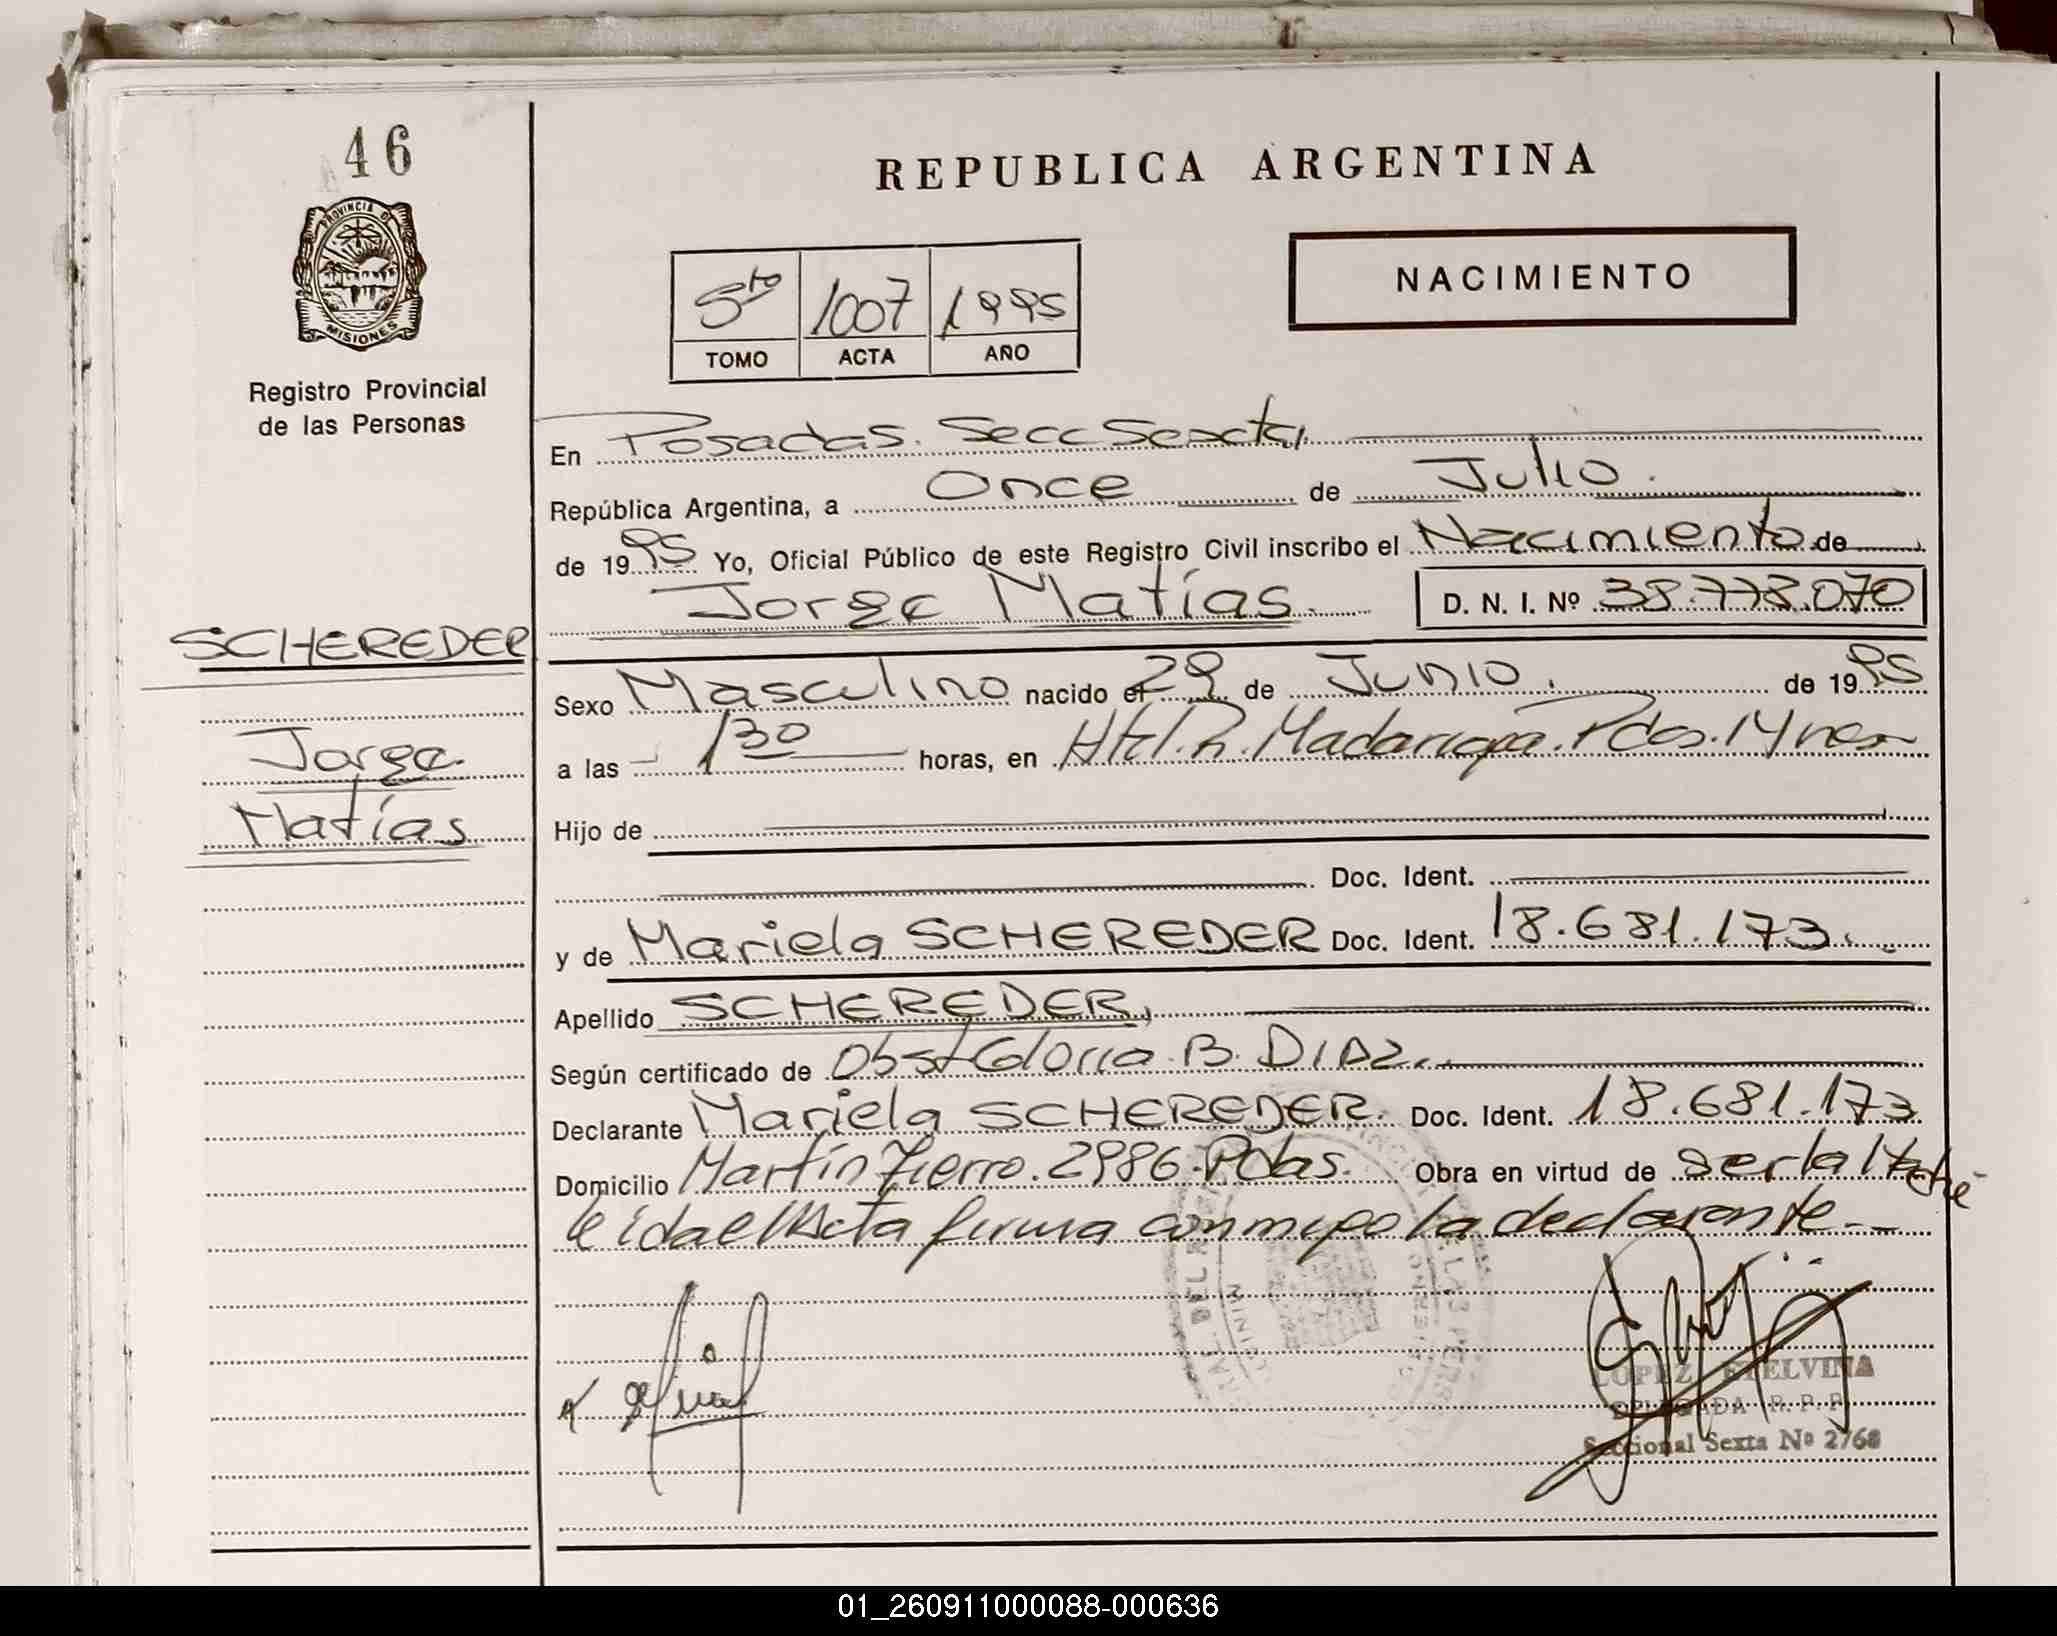 46
PROVINCIA DE
MISIONES
Registro Provincial
de las Personas
SCHEREDER
Jorge
Matías
REPUBLICA ARGENTINA
5to 1007 1995
TOMO ACTA AÑO
NACIMIENTO
En Posadas. Secc Sexta,
República Argentina, a Once de Julio.
de 1995 Yo, Oficial Público de este Registro Civil inscribo el Nacimiento de
Jorge Matías. D. N. I. Nº 38.778.070
Sexo Masculino nacido el 29 de Junio. de 1995
a las 1 30 horas, en Htal. R. Madariaga. Pdas. Mnes
Hijo de
Doc. Ident.
y de Mariela SCHEREDER Doc. Ident. 18.681.173.
Apellido SCHEREDER,
Según certificado de Obst Gloria B. DIAZ..
Declarante Mariela SCHEREDER. Doc. Ident. 18.681.173
Domicilio Martín Fierro. 2986. Pdas. Obra en virtud de ser la Madre
leida el Acta firma conmigo la declarante.-
LOPEZ ETELVINA
DELEGADA R. P. P.
Seccional Sexta Nº 2768
01_260911000088-000636